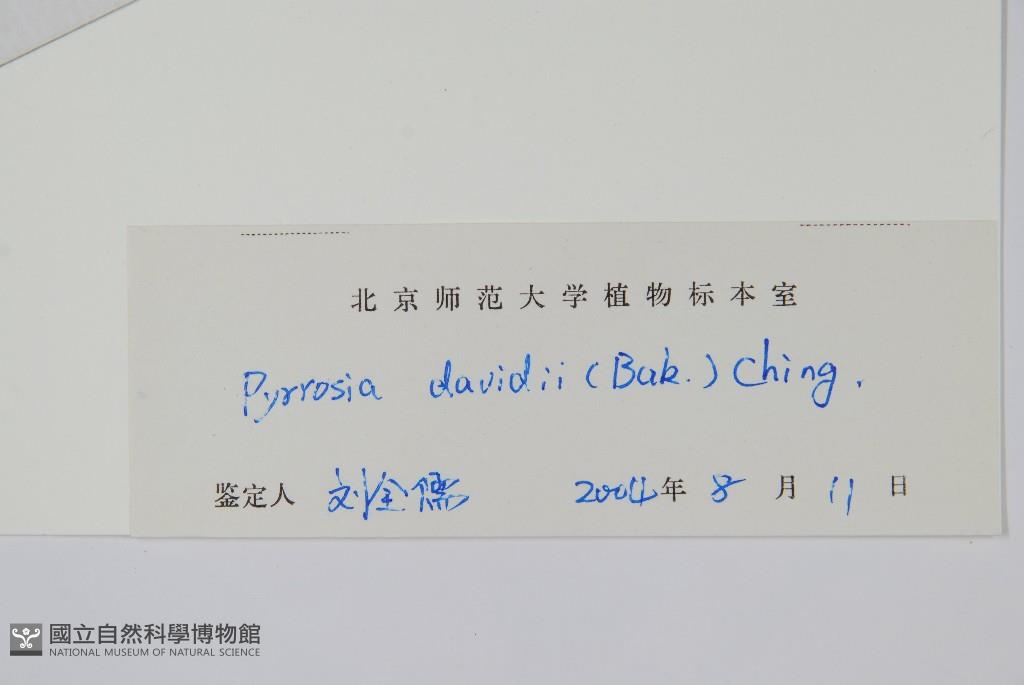 北京师范大学植物标本室
Pyrrosia davidii (Bak.) Ching.
鉴定人 刘全儒 2004年 8 月 11 日
國立自然科學博物館
NATIONAL MUSEUM OF NATURAL SCIENCE